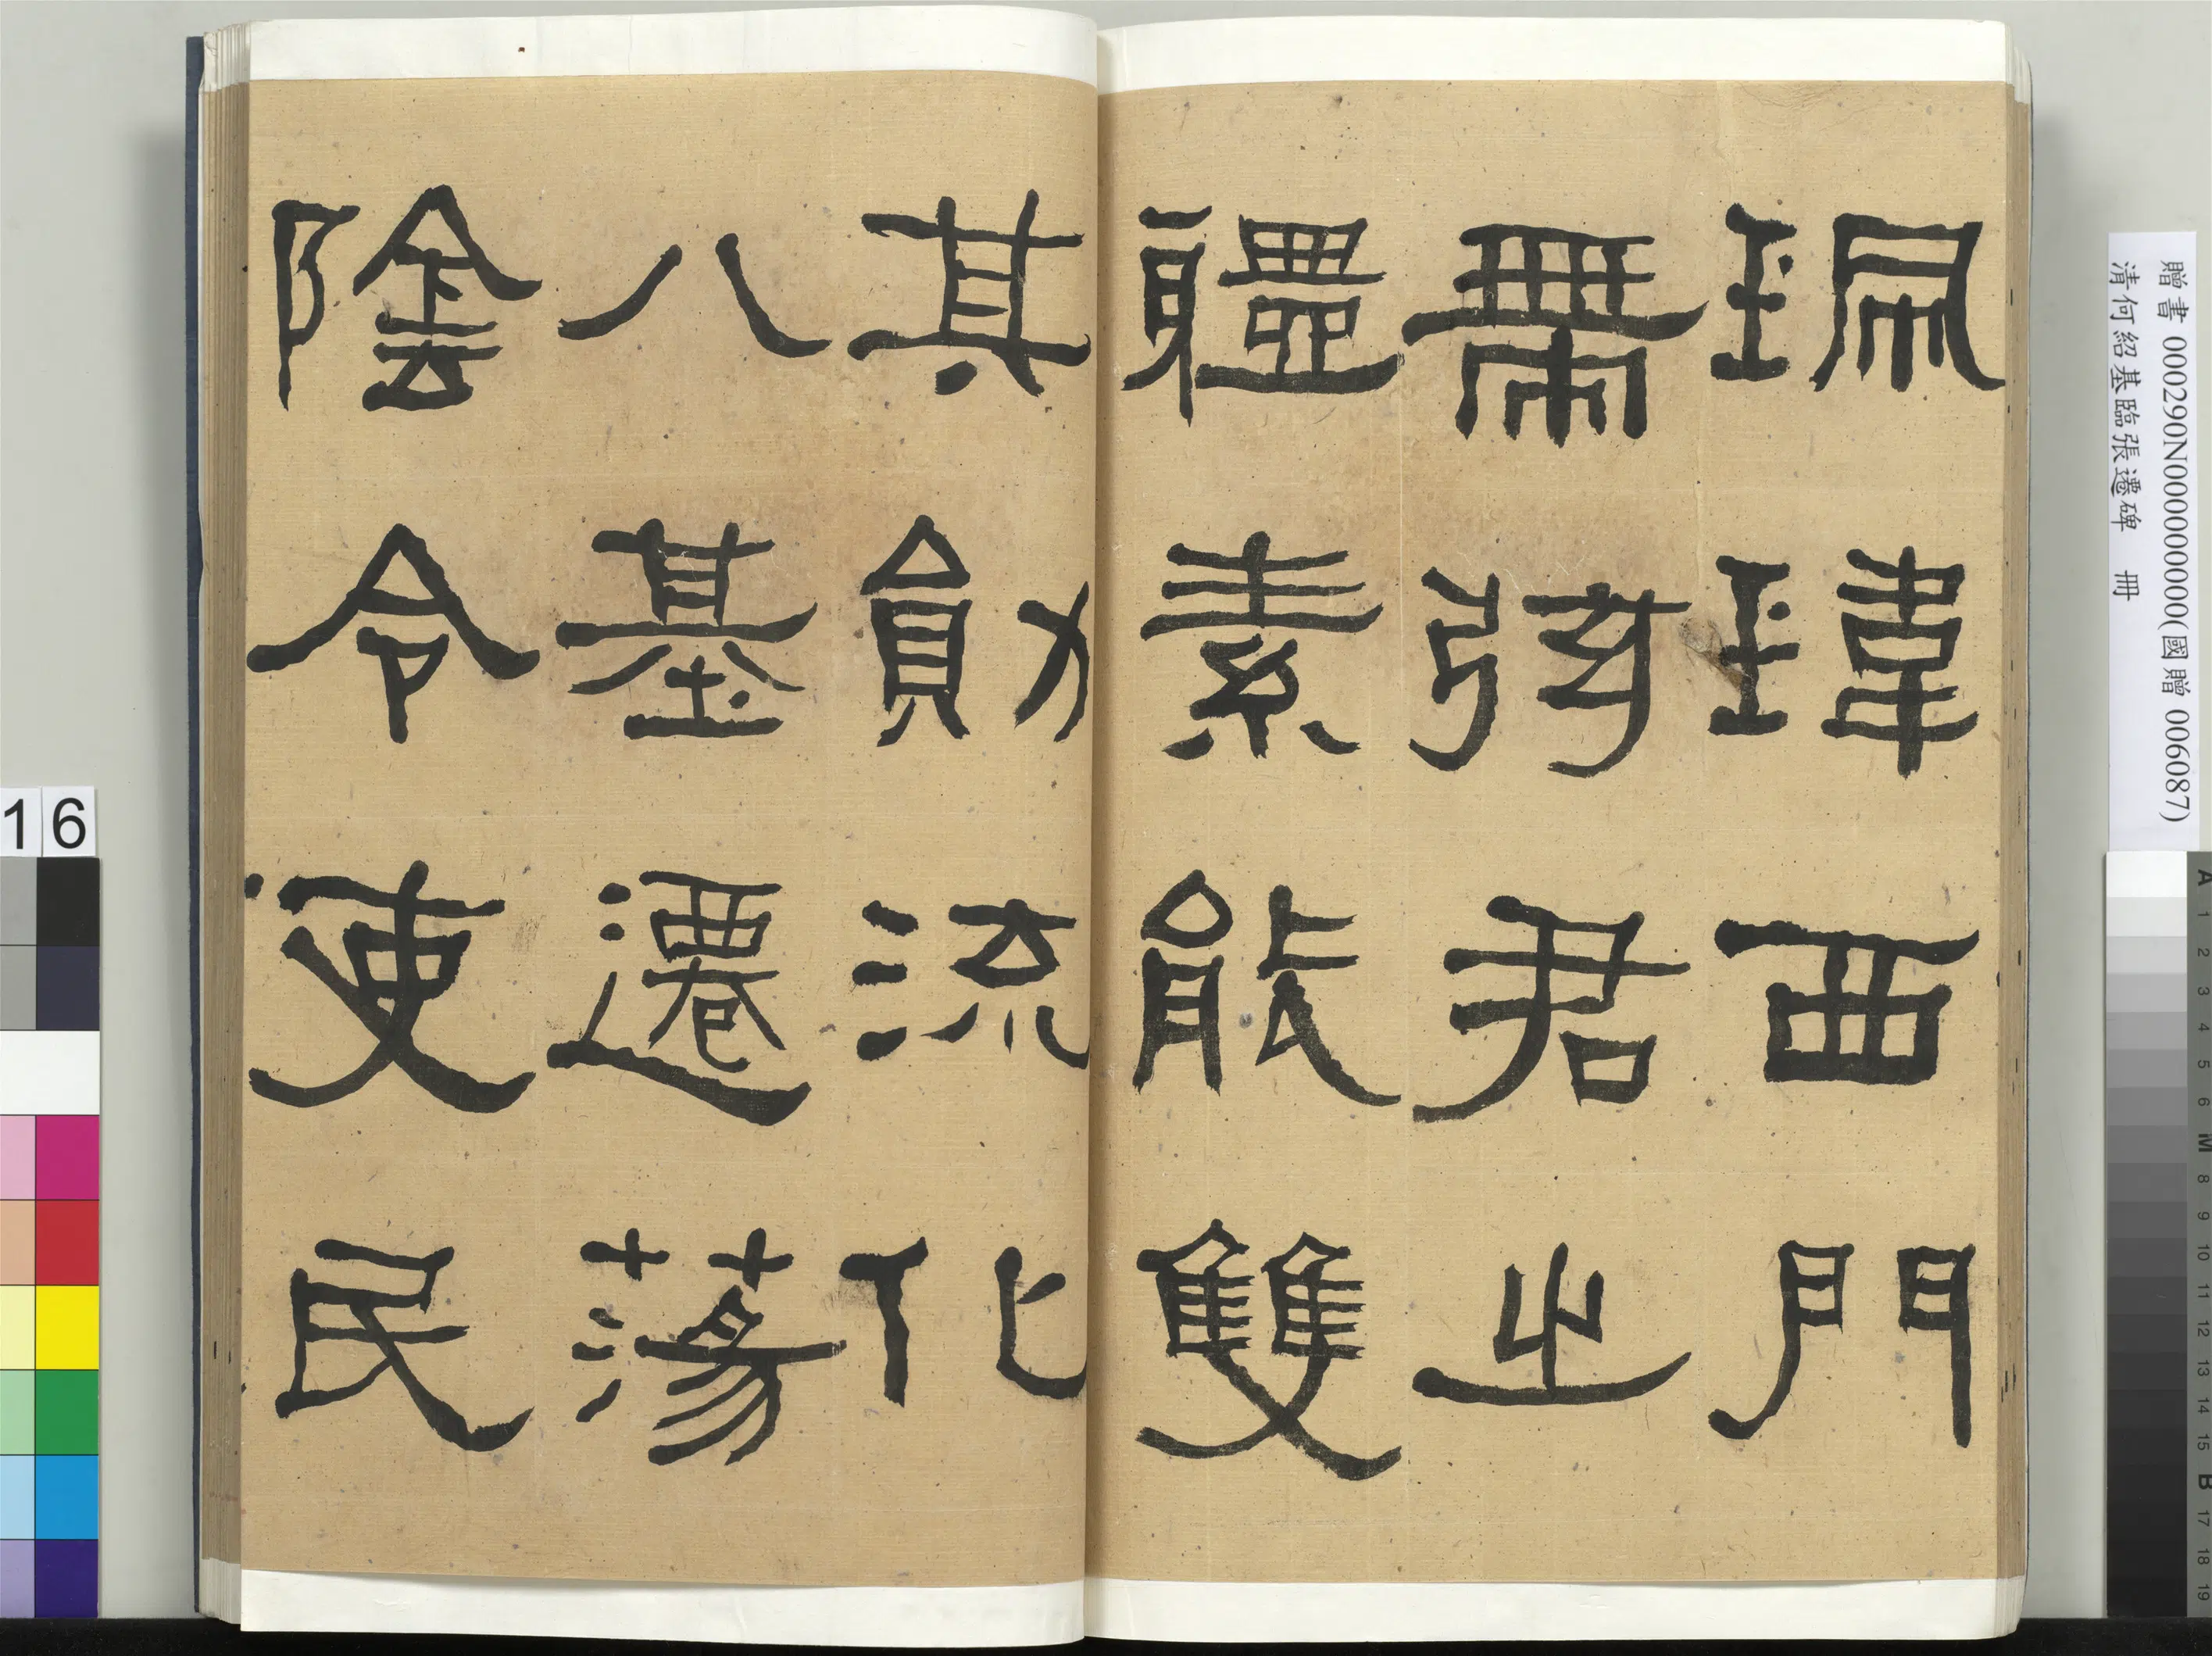 珮瑋西門
帶弦君之
體素能雙
其勛流化
八基遷蕩
陰令吏民
贈書 000290N000000000(國贈 006087)
清何紹基臨張遷碑 冊
16
A 1 2 3 4 5 6 M 8 9 10 11 12 13 14 15 B 17 18 19